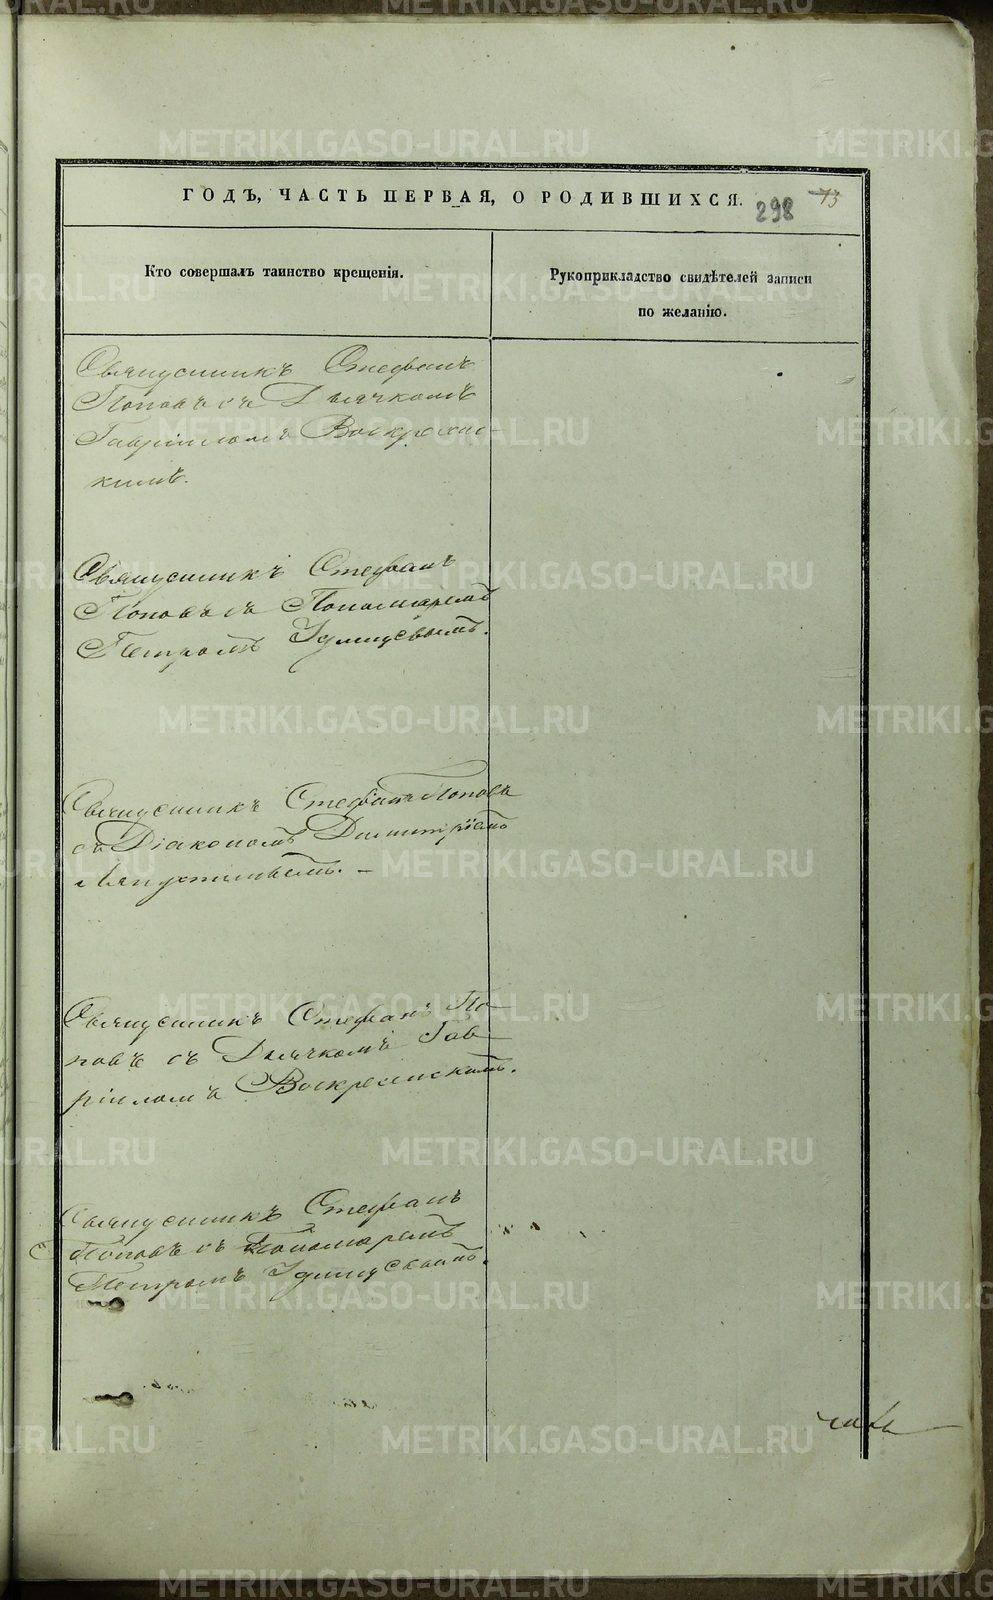 ГОДЪ, ЧАСТЬ ПЕРВАЯ, О РОДИВШИХСЯ.
298 73
Кто совершалъ таинство крещенія.
Рукоприкладство свидѣтелей записи
по желанію.
Священникъ Стефанъ
Поповъ съ Дьячкомъ
Гавріиломъ Воскресен-
кимъ.
Священникъ Стефанъ
Поповъ съ Пономаремъ
Петромъ
Священникъ Стефанъ Поповъ
съ Діакономъ Димитріемъ
Священникъ Стефанъ По-
повъ съ Дьячкомъ Гав-
ріиломъ Воскресенскомъ.
Священникъ Стефанъ
Поповъ съ Пономаремъ
Петромъ
METRIKI.GASO-URAL.RU